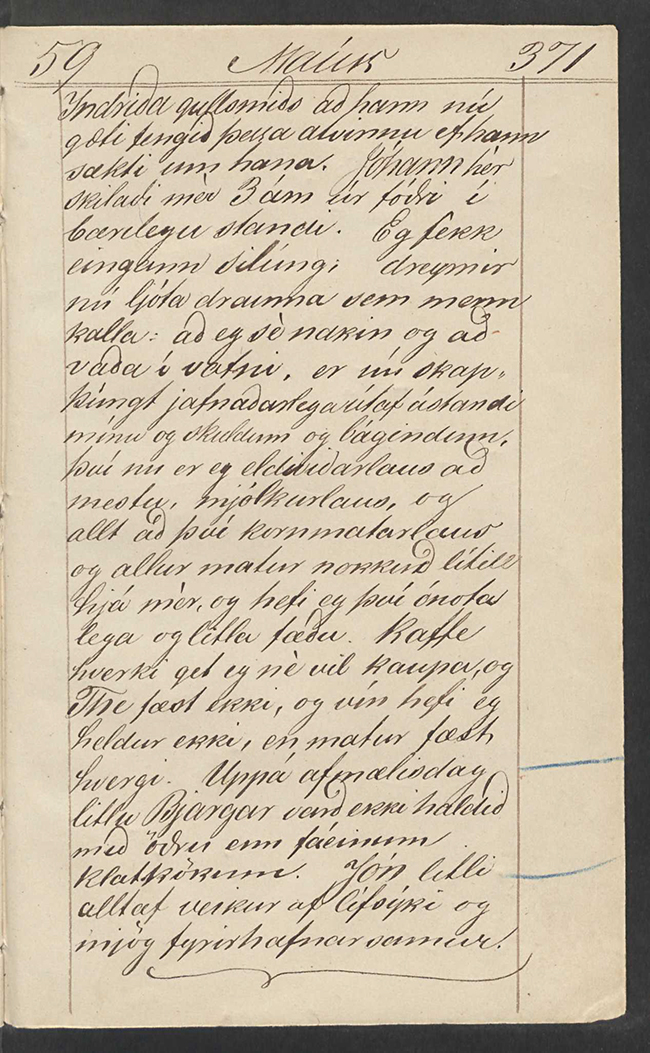 59 Marts 371
Indrida gullsmids ad hann nú
gæti fengid þessa atvinnu ef hann
sækti um hana. Jóhann hér
skiladi mèr 3 ám úr fódri í
bærilegu standi. Eg fekk
eingann silúng; dreymir
nú ljóta drauma sem menn
kalla: ad eg sè nakin og ad
vada í vatni, er nú skap-
þúngt jafnadarlega útaf ástandi
mínu og skuldum og bágindum,
því nu er eg eldividarlaus ad
mestu, mjólkurlaus, og
allt ad því kornmatarlaus
og allur matur nokkud lítill
hjá mèr, og hefi eg því ónota
lega og litla fædu. Kaffe
hverki get eg nè vil kaupa, og
The fæst ekki, og vín hefi eg
heldur ekki, en matur fæst
hvergi. Uppá afmælisdag
litlu Bjargar vard ekki haldid
med ödru enn fáeinum
klattkökum. Jón litli
alltaf veikur af lífsýki og
mjög fyrirhafnarsamur.